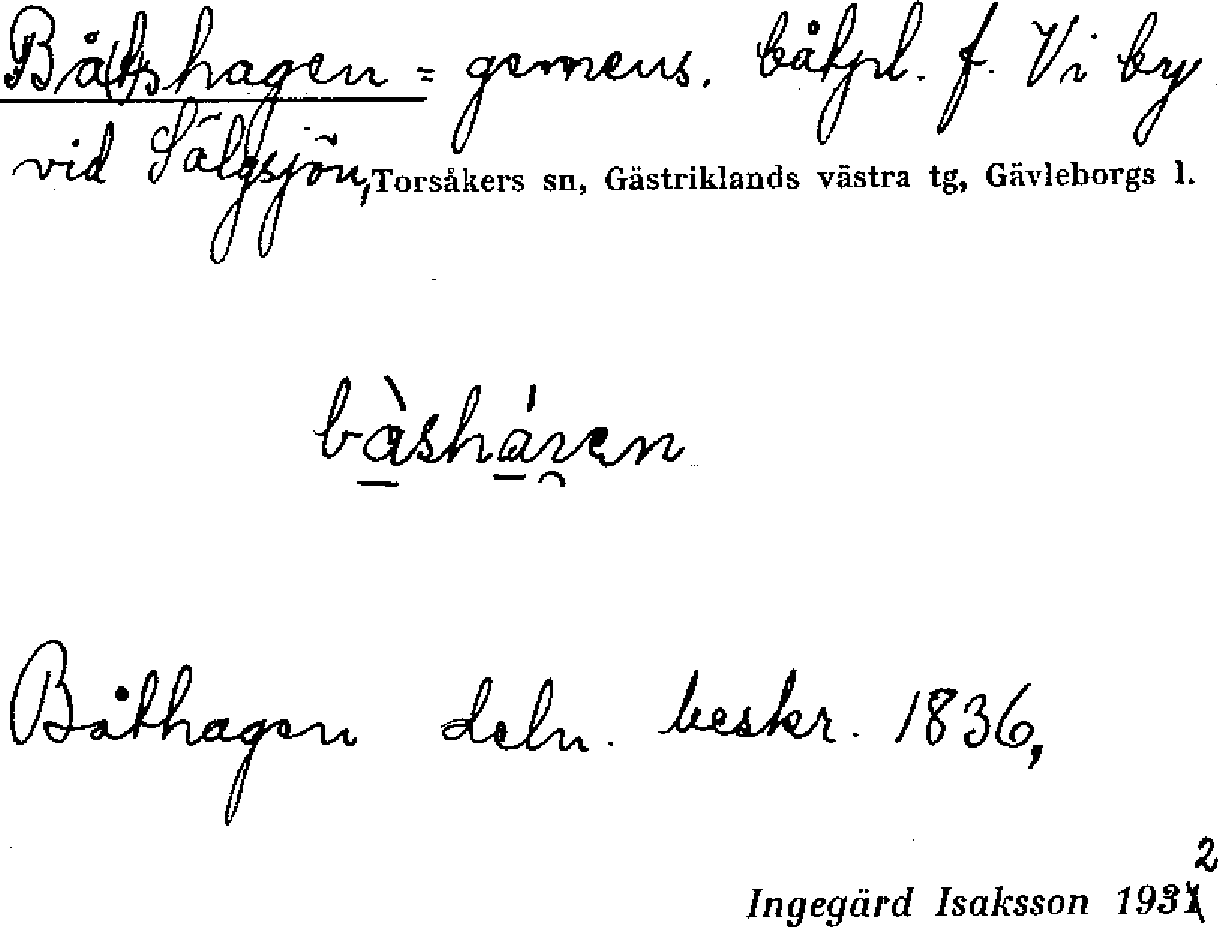 Båtshagen = gemens. båtpl. f. Vi by
vid Sälgsjön, Torsåkers sn, Gästriklands västra tg, Gävleborgs l.
bàsháɤen
Båthagen deln. beskr. 1836,
Ingegärd Isaksson 1932